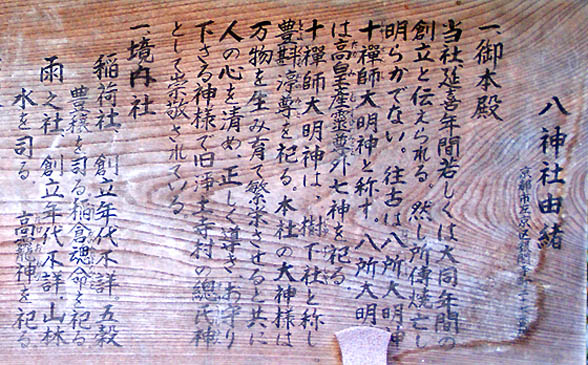 八神社由緒
京都市左京区銀閣寺町
一、御本殿
当社、延喜年間若しくは大同年間の
創立と伝えられる。然し所傳焼亡し
明らかでない。往古は八所大明神
十禪師大明神と称す。八所大明
は高皇産靈尊外七神を祀る。
十禪師大明神は、樹下社と称し
豊斟渟尊を祀る。本社の大神様は
万物を生み育て繁栄させると共に
人の心を清め、正しく導き、お守り
下さる神様で旧浄土寺村の總氏神
として崇敬されている
一、境内社
稲荷社、創立年代不詳。五穀
豊穣を司る稲倉魂命を祀る
雨之社 創立年代不詳、山林
水を司る 高龗神を祀る